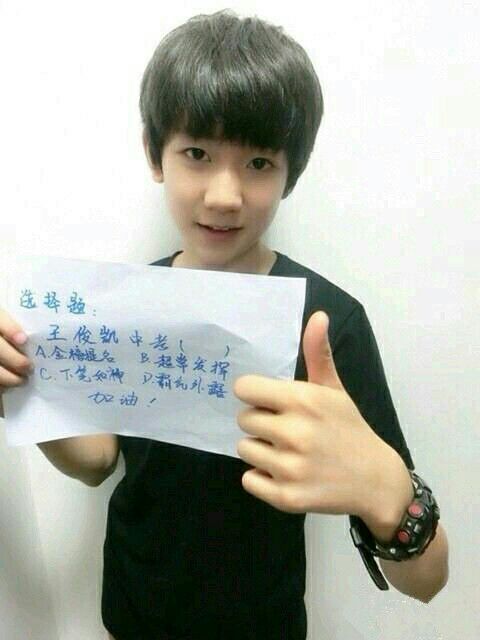 选择题:
王俊凯中考( )
A.金榜提名 B.超常发挥
C.下笔如神 D.霸气外露
加油!